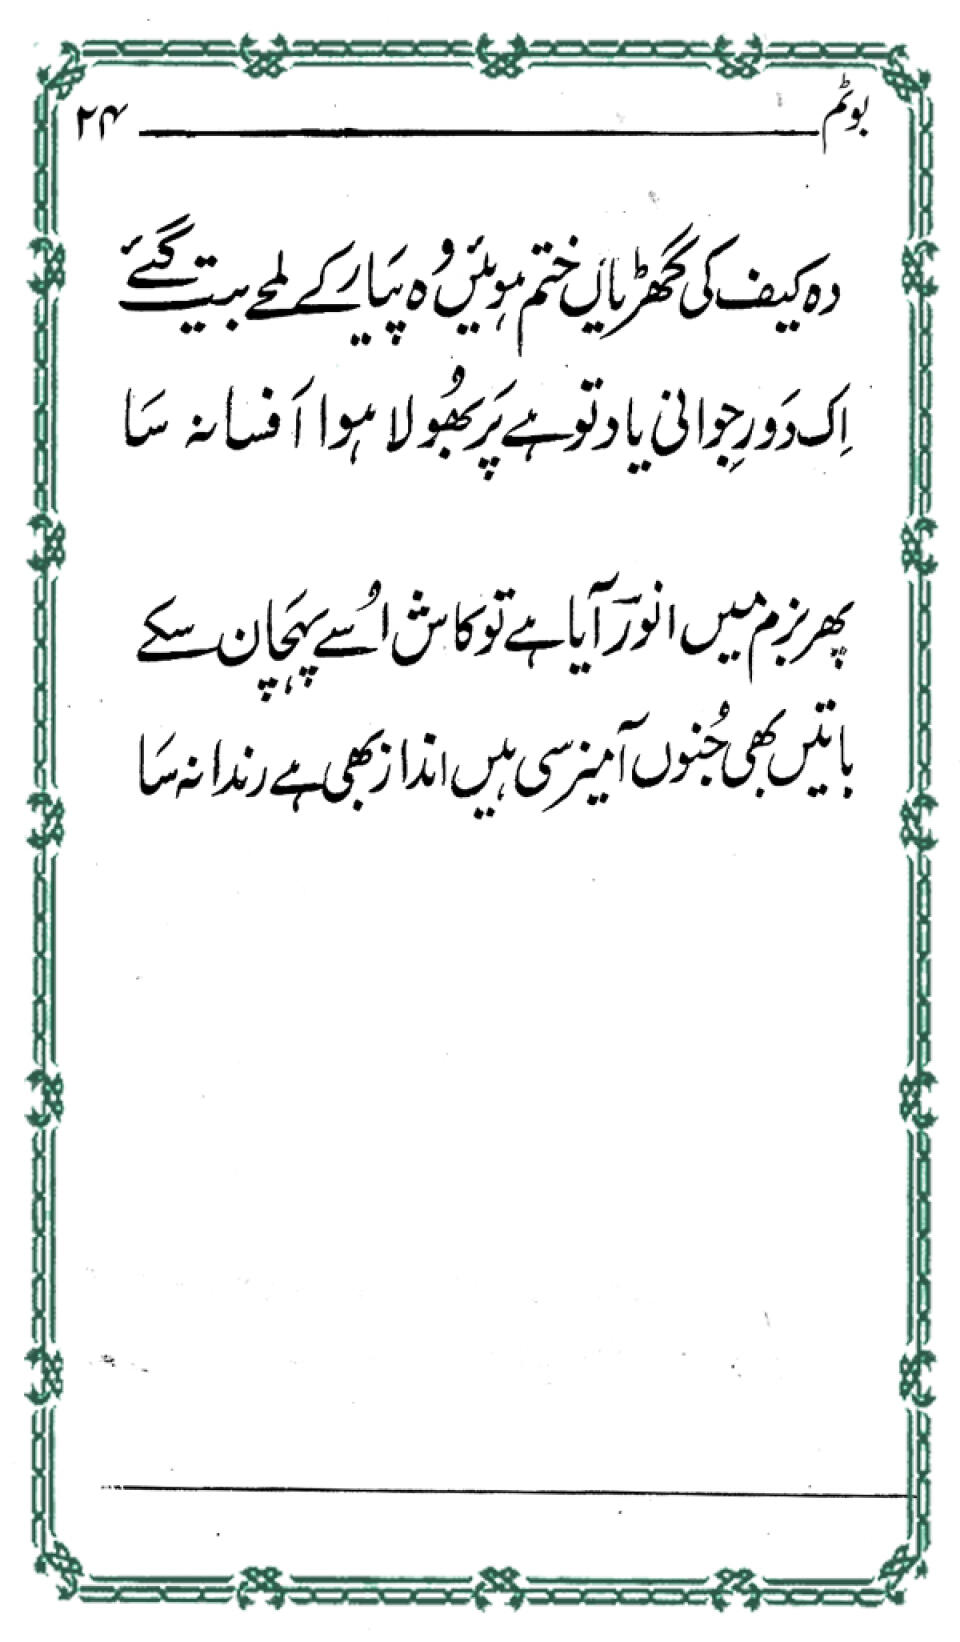 بوٹم ۲۴
وہ کیف کی گھڑیاں ختم ہوئیں وہ پیار کے لمحے بیت گئے
اِک دَورِ جوانی یاد تو ہے پَر بھُولا ہوا اَفسانہ سَا
پھر بزم میں انورؔ آیا ہے تو کاش اُسے پہچان سکے
باتیں بھی جُنوں آمیز سی ہیں انداز بھی ہے رندانہ سَا